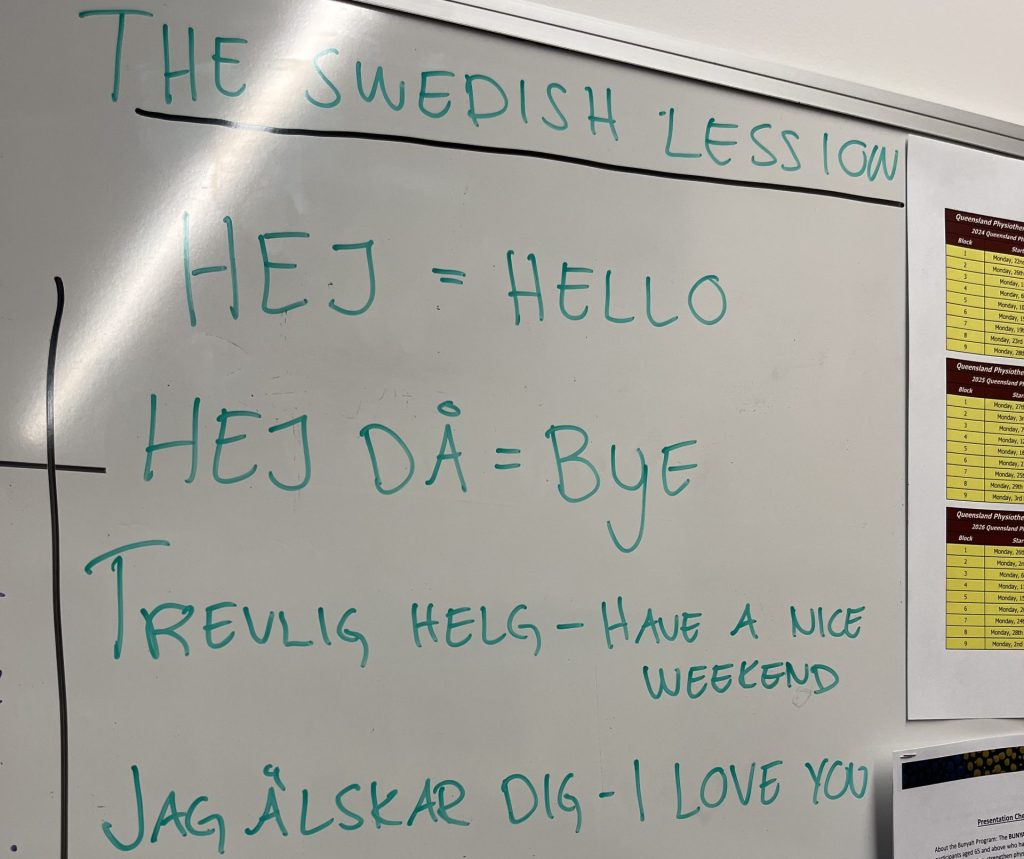 THE SWEDISH LESSION
HEJ = HELLO
HEJ DÅ = BYE
TREVLIG HELG - HAVE A NICE
WEEKEND
JAG ÄLSKAR DIG - I LOVE YOU
Queensland
2024 Queensland
Block
1 Monday,
2 Monday,
3 Monday,
4 Monday,
5 Monday,
6 Monday,
7 Monday,
8 Monday, 23rd
9 Monday,
Queensland
2025 Queensland
Block
1 Monday,
2 Monday,
3 Monday,
4 Monday,
5 Monday,
6 Monday,
7 Monday,
8 Monday, 29th
9 Monday, 3rd
Queensland
2026 Queensland
Block
1 Monday,
2 Monday,
3 Monday,
4 Monday,
5 Monday,
6 Monday,
7 Monday,
8 Monday, 28th
9 Monday, 2nd
Presentation
About the Bunyah Program: The
participants aged 65 and above who
strengthen